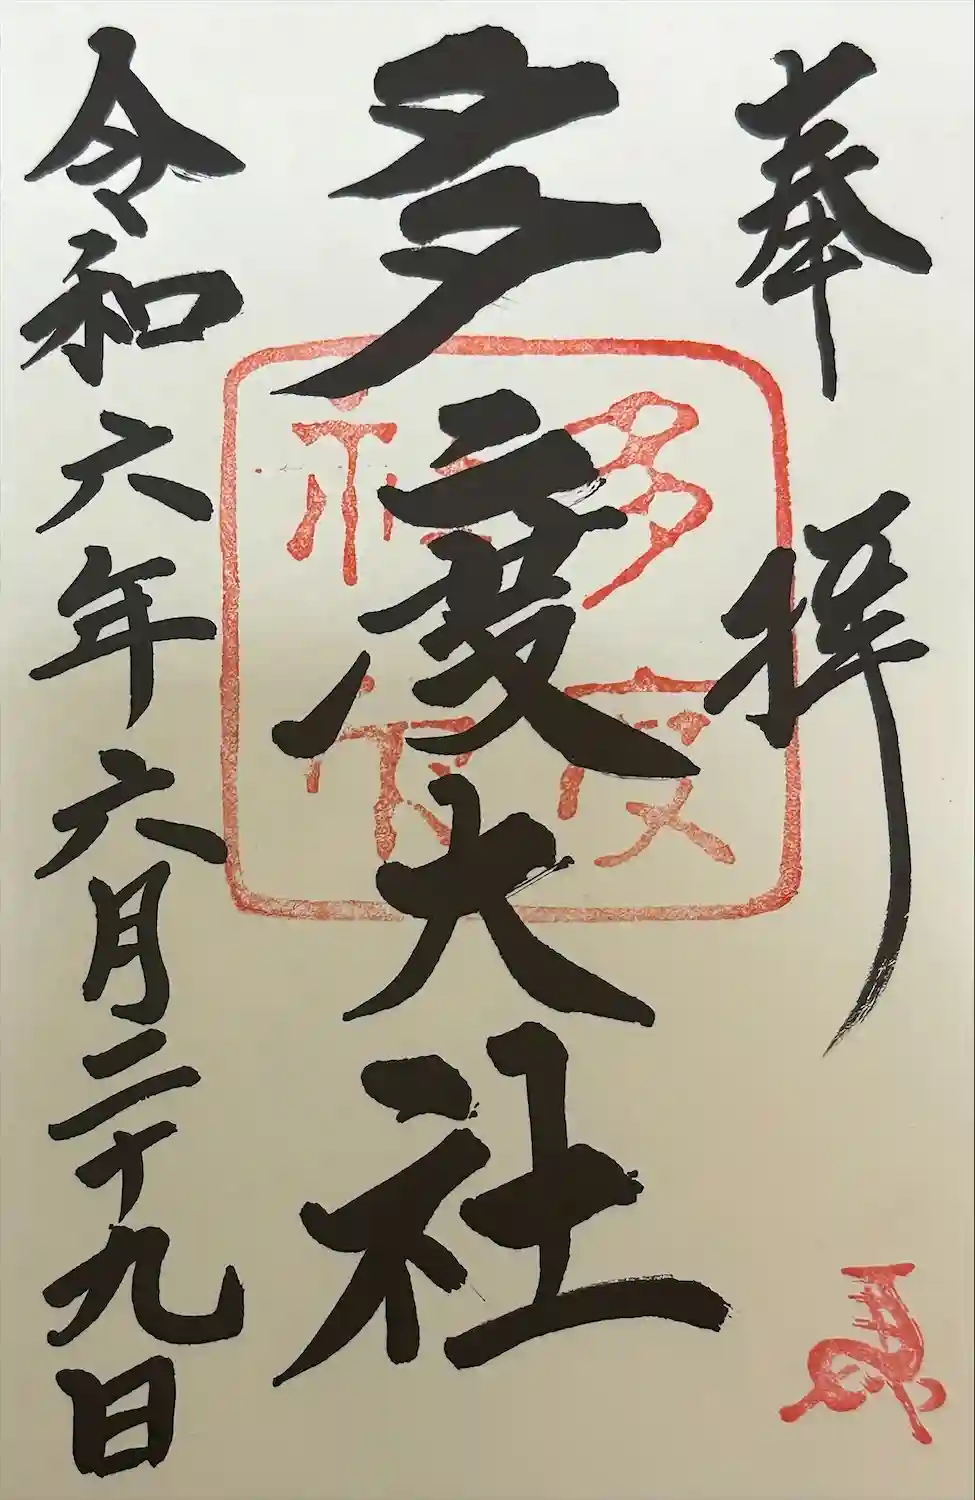 奉拝
多度大社
令和六年六月二十九日
多度神宮